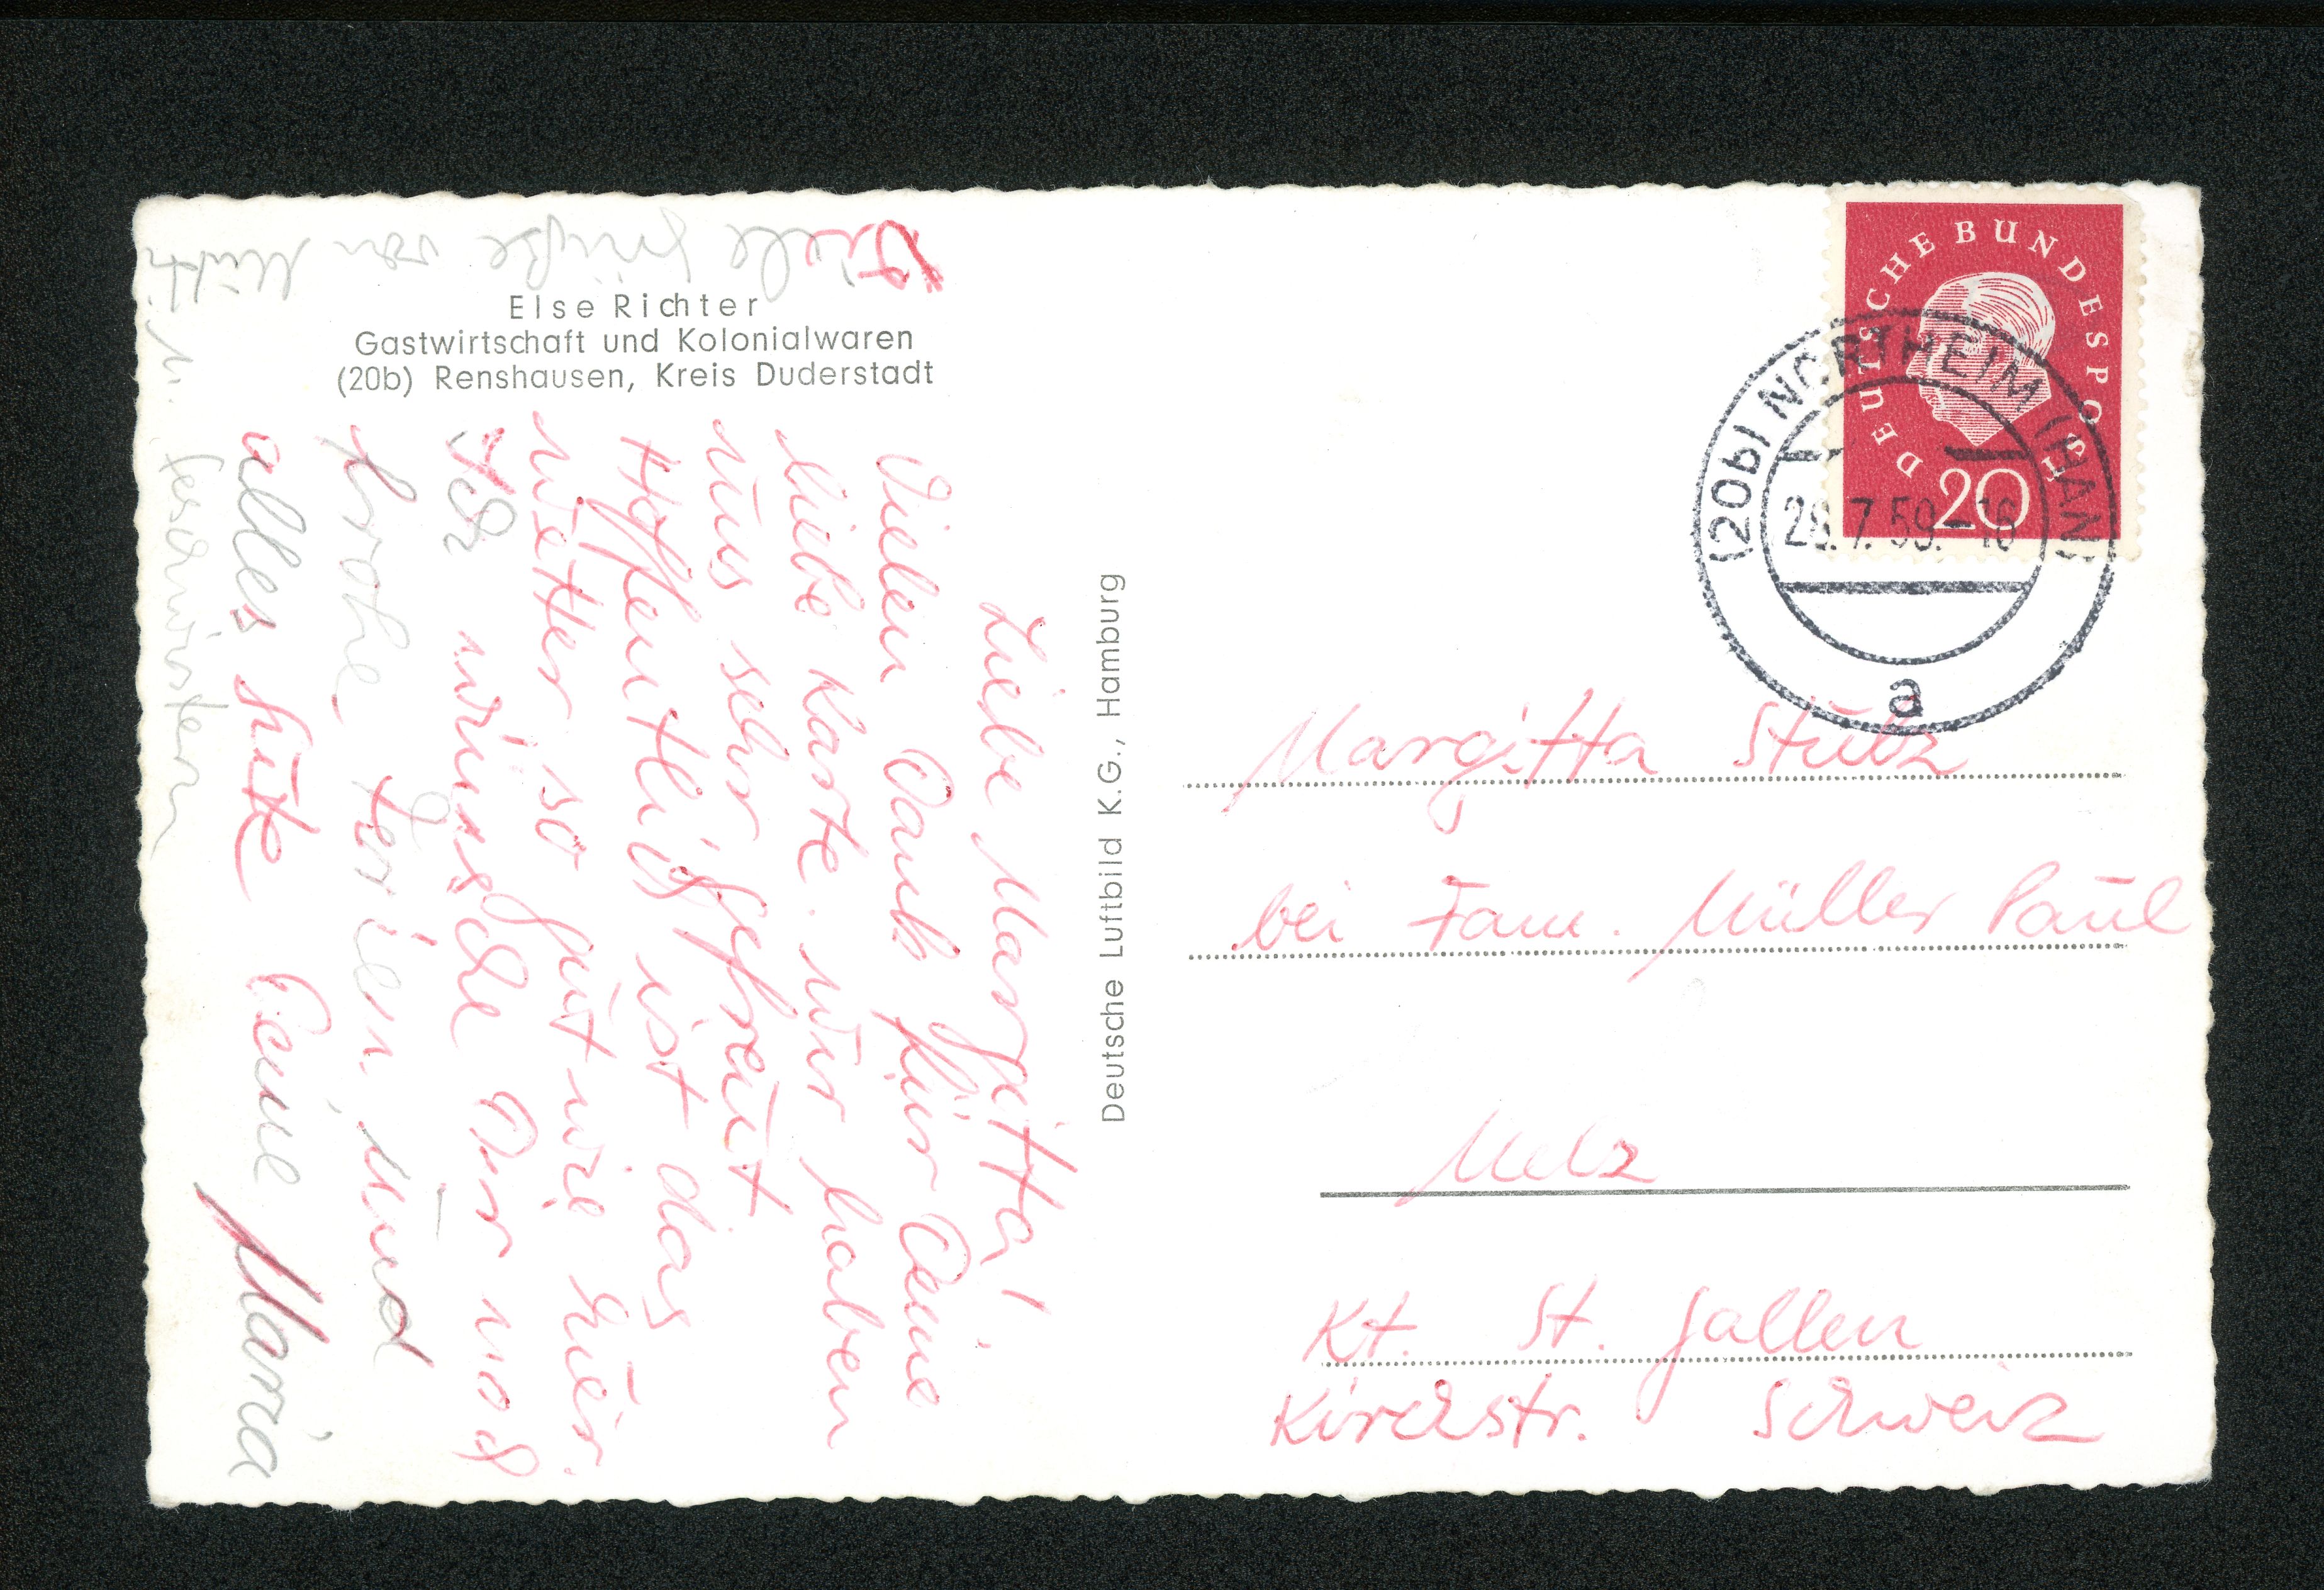 Else Richter
Gastwirtschaft und Kolonialwaren
(20b) Renshausen, Kreis Duderstadt
Liebe Margitta!
Vielen Dank für Deine
liebe Karte. wir haben
uns sehr gefreut
Hoffentlich ist das
wetter so gut wie hier.
Ich wünsche Dir noch
frohe Ferien und
alles gute Deine Maria
Viele grüße von Mutti
u. Geschwistern
Deutsche Luftbild K.G., Hamburg
DEUTSCHE BUNDESPOST
20
(20b) NORTHEIM (HAN)
28.7.59.-16
a
Margitta Stübz
bei Fam. Müller Paul
Melz
Kt. St. Gallen
Kirchstr. Schweiz